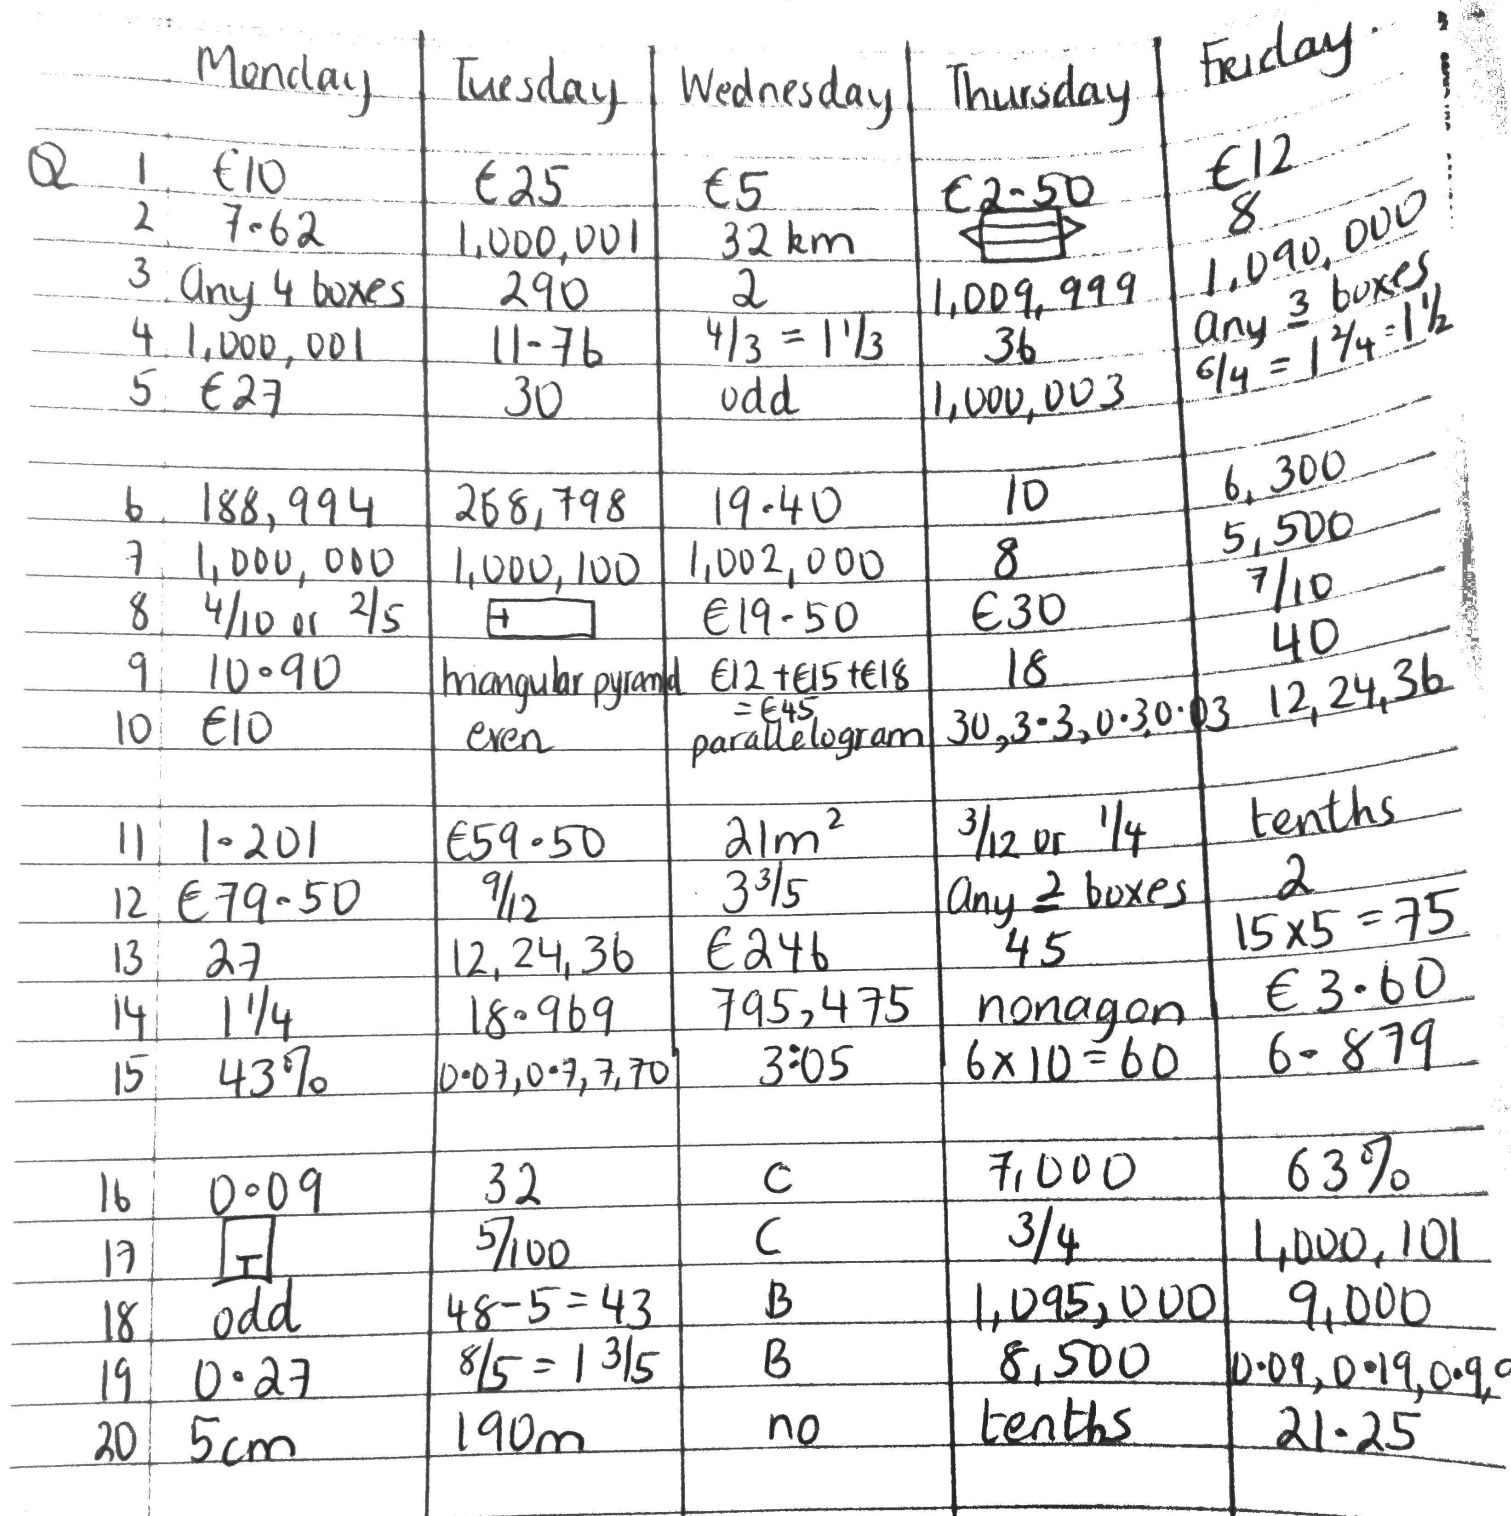 Monday Tuesday Wednesday Thursday Friday
Q 1 €10 €25 €5 €2.50 €12
2 7.62 1,000,001 32 km 8
3 Any 4 boxes 290 2 1,009,999 1,090,000
4 1,000,001 11-76 4/3 = 1 1/3 36 Any 3 boxes
5 €27 30 odd 1,000,003 6/4 = 1 2/4 = 1 1/2
6 188,994 268,798 19.40 10 6,300
7 1,000,000 1,000,100 1,002,000 8 5,500
8 4/10 or 2/5 + €19.50 €30 7/10
9 10.90 triangular pyramid €12 + €15 + €18 18 40
= €45
10 €10 even parallelogram 30, 3.3, 0.3, 0.03 12, 24, 36
11 1.201 €59.50 21m² 3/12 or 1/4 tenths
12 €79.50 9/12 3 3/5 Any 2 boxes 2
13 27 12, 24, 36 €246 45 15 x 5 = 75
14 1 1/4 18.969 795,475 nonagon €3.60
15 43% 0.07, 0.7, 7, 70 3:05 6 x 10 = 60 6.879
16 0.09 32 C 7,000 63%
17 T 5/100 C 3/4 1,000,101
18 odd 48 - 5 = 43 B 1,095,000 9,000
19 0.27 8/5 = 1 3/5 B 8,500 0.09, 0.19, 0.9,
20 5cm 190m no tenths 21.25